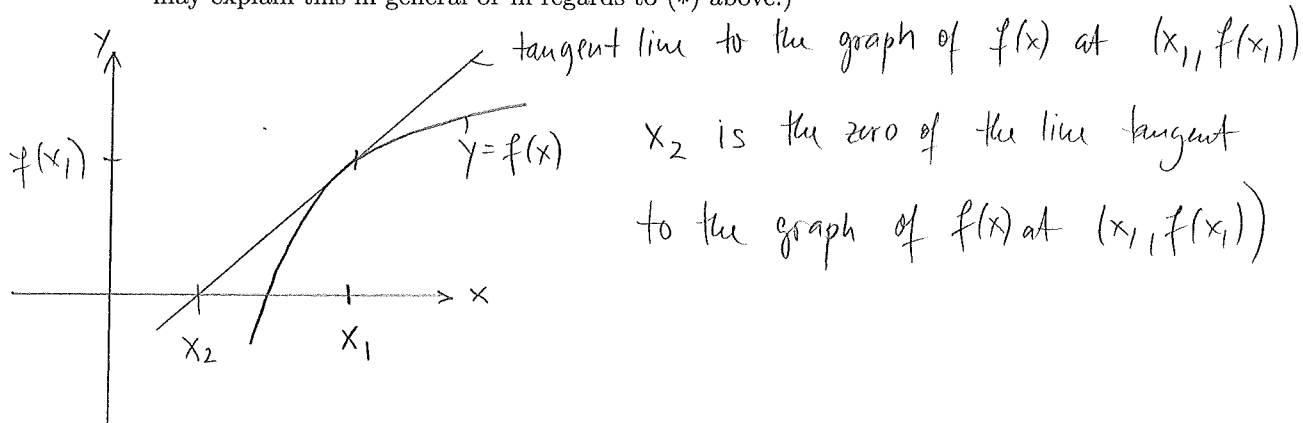 may explain this in general or in regards to (*) above.)
Y
tangent line to the graph of f(x) at (x₁, f(x₁))
f(x₁)
y=f(x)
x₂ is the zero of the line tangent
to the graph of f(x) at (x₁, f(x₁))
x
x₂
x₁